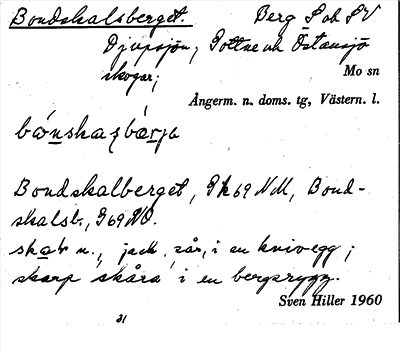 Bondskalsberget. Berg S och SV
Djupsjön, Gottne och Östansjö
skogar;
Mo sn
Ångerm. n. doms. tg, Västern. l.
Bondskalberget, Gk 69 NM, Bond-
skalsb., G 69 NO.
skal n., jack, sår, i en knivegg;
skarp skåra i en bergrygg.
Sven Hiller 1960
31